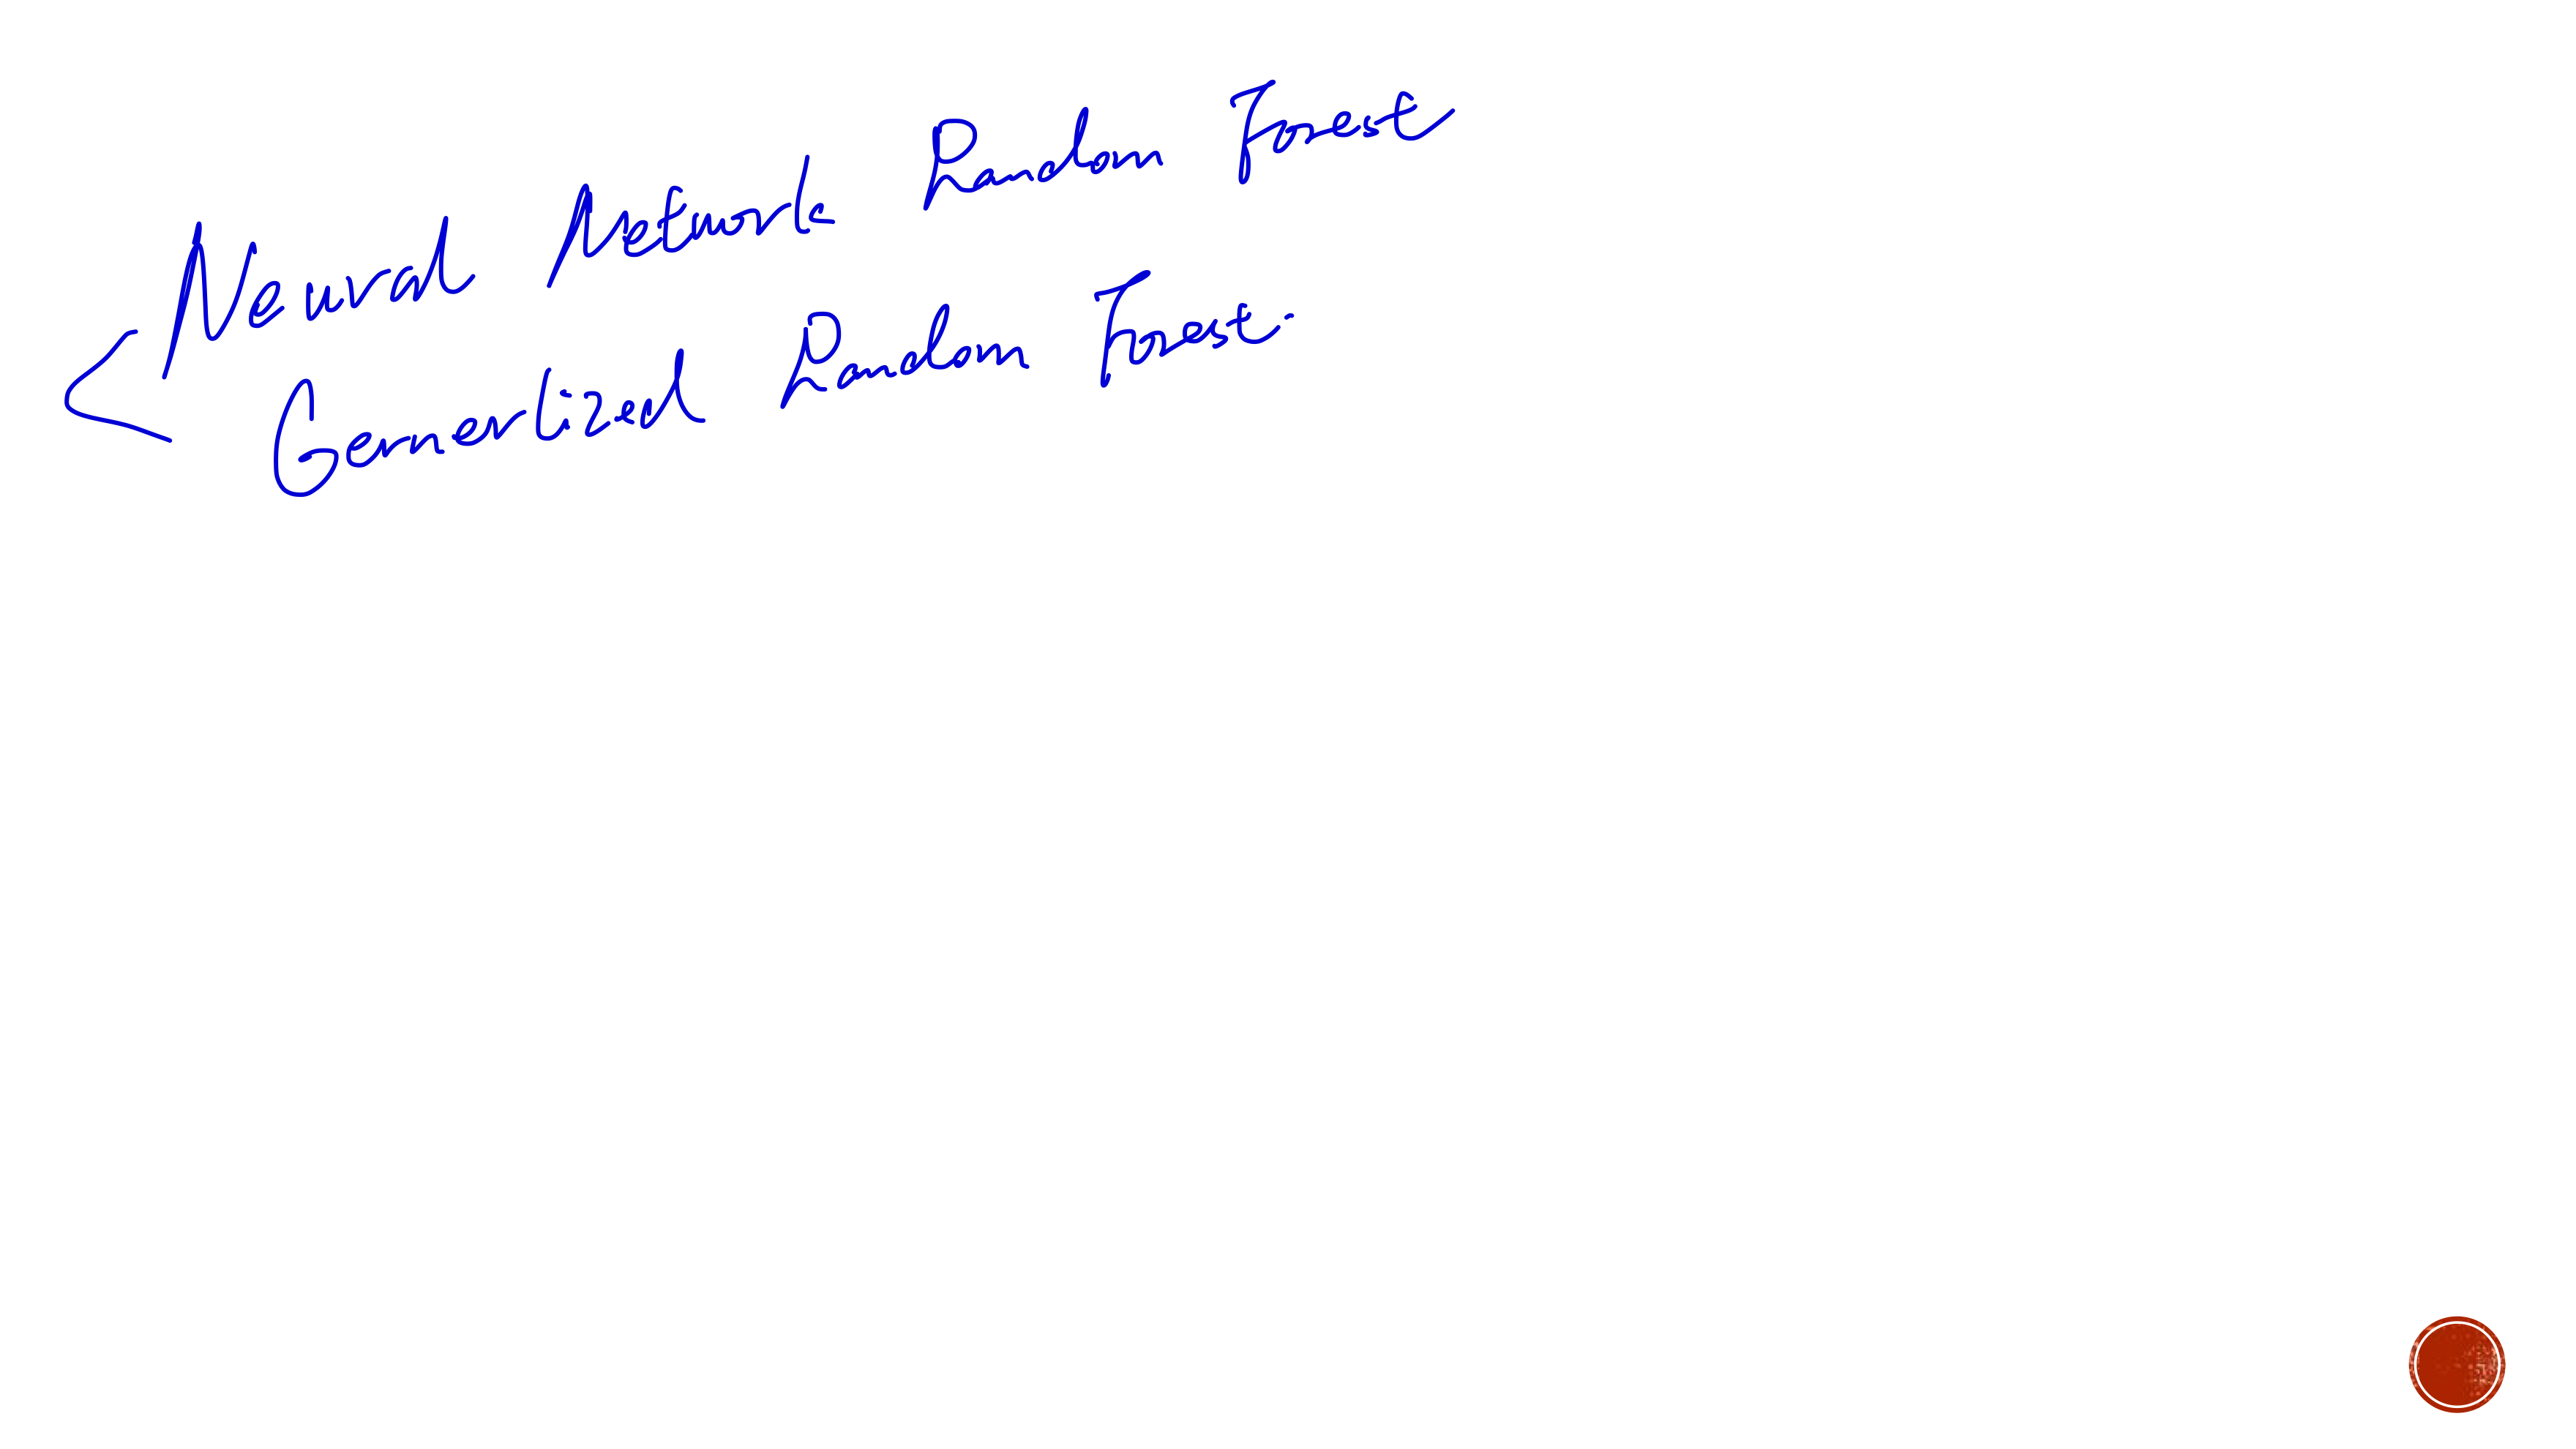 Neural Network Random Forest
Generlized Random Forest.